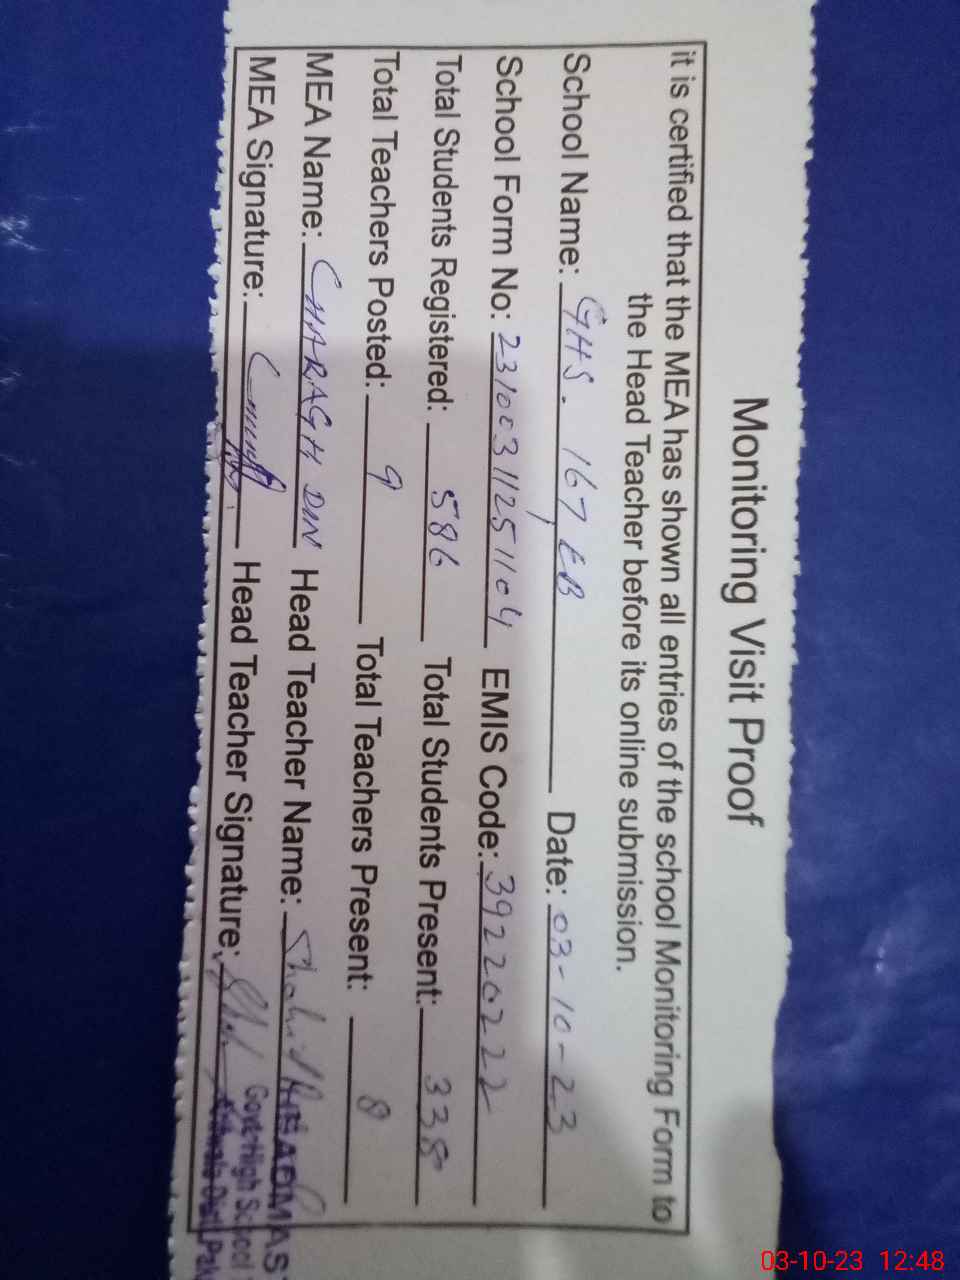 Monitoring Visit Proof
it is certified that the MEA has shown all entries of the school Monitoring Form to
the Head Teacher before its online submission.
School Name: GHS. 167/EB Date: 03-10-23
School Form No: 231003112511104 EMIS Code: 39220222
Total Students Registered: 586 Total Students Present: 338
Total Teachers Posted: 9 Total Teachers Present: 8
MEA Name: CHARAGH DIN Head Teacher Name: Shahid
MEA Signature: Head Teacher Signature:
HEADMAS
Govt High School
03-10-23 12:48